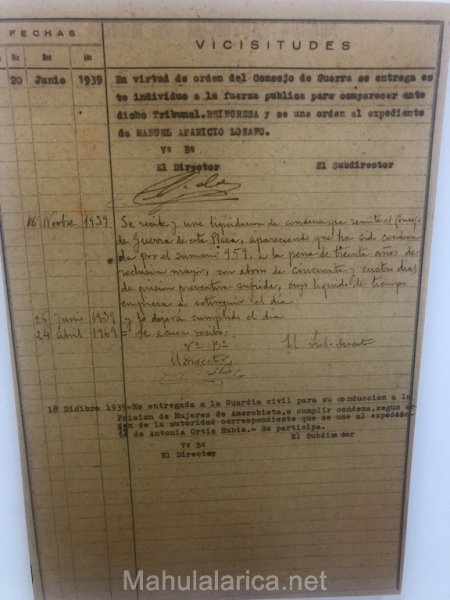 FECHAS
VICISITUDES
20 Junio 1939
En virtud de orden del Consejo de Guerra se entrega es
te individuo a la fuerza publica para comparecer ante
dicho Tribunal. REINGRESA y se une orden al expediente
de MANUEL APARICIO LOZANO.
Vº Bº
El Director El Subdirector
16 Novbre 1939
Se recibe y une liquidacion de condena que remite el Consejo
de Guerra de esta Plaza, apareciendo que ha sido condena
da por el sumario 959, a la pena de treinta años de
reclusion mayor, son abono de cincuenta y cuatro dias
de prision preventiva sufrida, cuyo liquido de tiempo
empezara a extinguir el dia
26 Junio 1939 y lo dejará cumplido el dia
24 abril 1969 = Se acusa recibo.
Vº Bº
El Director El Sub-direct
18 Dicibre 1939-Ha entregada a la Guardia civil para su conduccion a la
Prision de Mujeres de Amorebieta, a cumplir condena, segun or
den de la autoridad correspondiente que se une al expedien
te de Antonia Ortiz Rubio.- Se participa.
Vº Bº El Subdirector
El Director
Mahulalarica.net